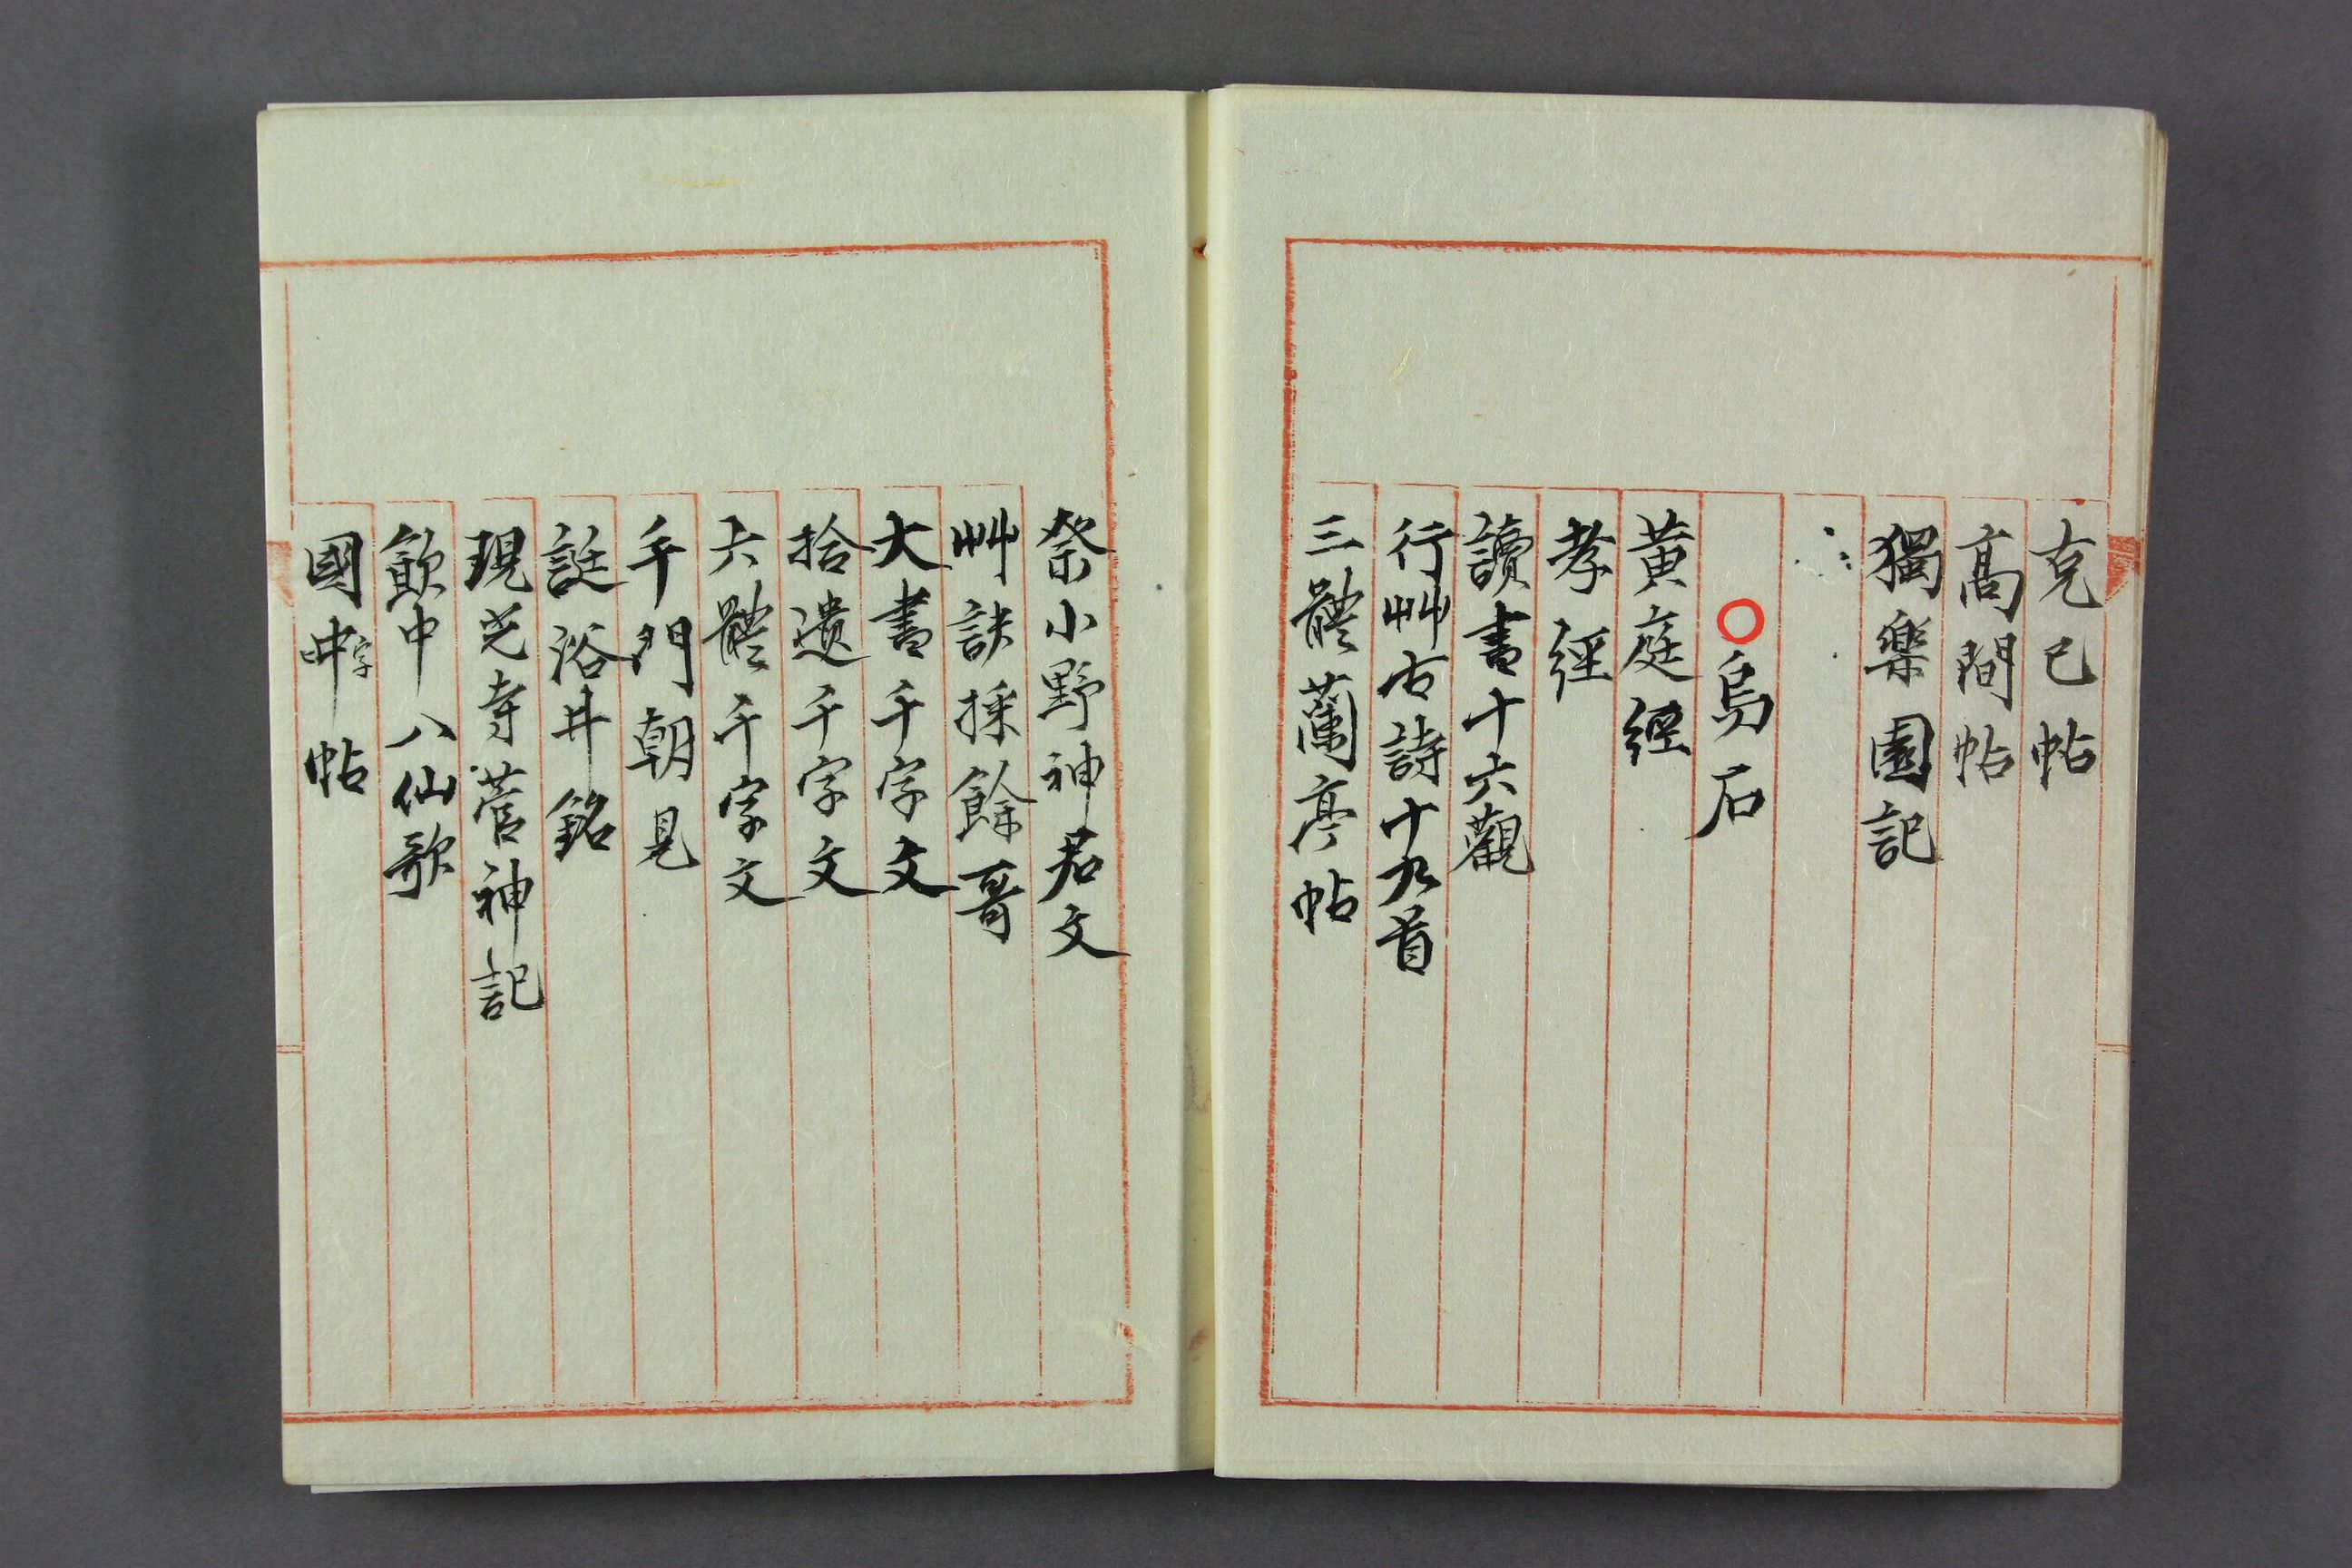 克己帖
高間帖
獨樂園記
〇烏石
黄庭經
孝經
讀書十六觀
行艸古詩十九首
三體蘭亭帖
祭小野神君文
艸訣採餘哥
大書千字文
拾遺千字文
六體千字文
千門朝見
誕浴井銘
現光寺菅神記
飲中八仙歌
國字帖